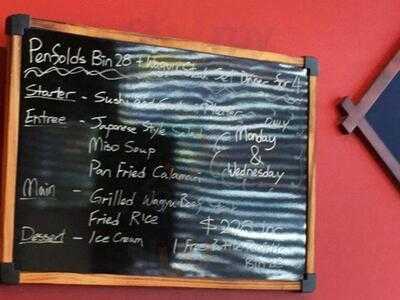 Penfolds Bin 28 + Wagyu Steak Set Dinner for 4
Starter - Sushi and Platter
Entree - Japanese Style Salad
Miso Soup
Pan Fried Calamari
only
Monday
&
Wednesday
Main - Grilled Wagyu Beef
Fried Rice
Dessert - Ice Cream
1 Free Bottle
Bin 28